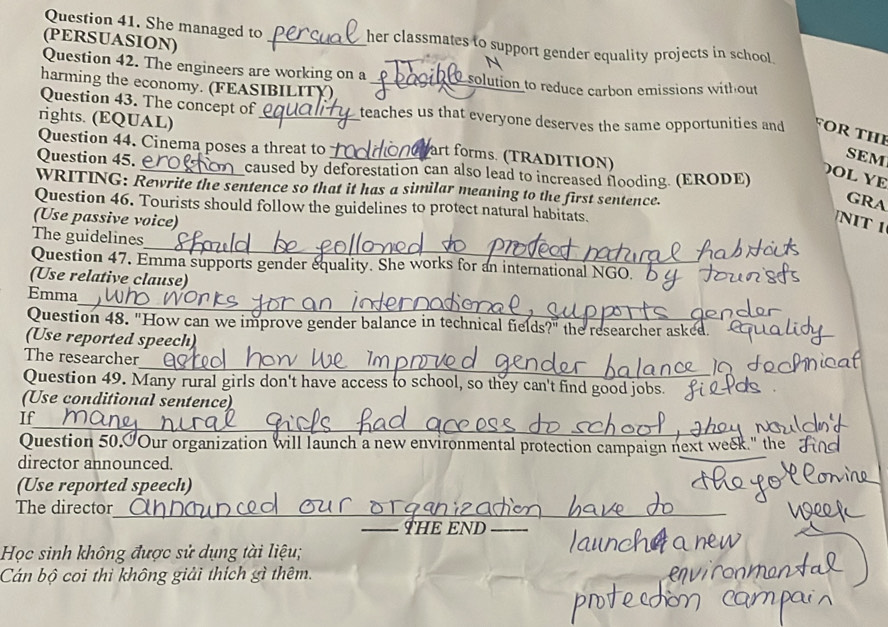 Question 41. She managed to persual her classmates to support gender equality projects in school.
(PERSUASION)
N
Question 42. The engineers are working on a solution to reduce carbon emissions without
harming the economy. (FEASIBILITY)
Question 43. The concept of equality teaches us that everyone deserves the same opportunities and
rights. (EQUAL)
Question 44. Cinema poses a threat to art forms. (TRADITION)
Question 45. caused by deforestation can also lead to increased flooding. (ERODE)
WRITING: Rewrite the sentence so that it has a similar meaning to the first sentence.
Question 46. Tourists should follow the guidelines to protect natural habitats.
(Use passive voice)
The guidelines should be followed to protect natural habitats
by tourists
Question 47. Emma supports gender equality. She works for an international NGO.
(Use relative clause)
Emma , who works for an international, supports gender
equality
Question 48. "How can we improve gender balance in technical fields?" the researcher asked.
(Use reported speech)
The researcher asked how we improved gender balance in technical
fields.
Question 49. Many rural girls don't have access to school, so they can't find good jobs.
(Use conditional sentence)
If many rural girls had access to school, they wouldn't
find
Question 50. "Our organization will launch a new environmental protection campaign next week." the
director announced.
(Use reported speech)
The director announced our organization have to
launch a new
environmental
protection campain
the following
week
THE END
Học sinh không được sử dụng tài liệu;
Cán bộ coi thi không giải thích gì thêm.
FOR THE
SEM
OOL YE
GRA
UNIT 1